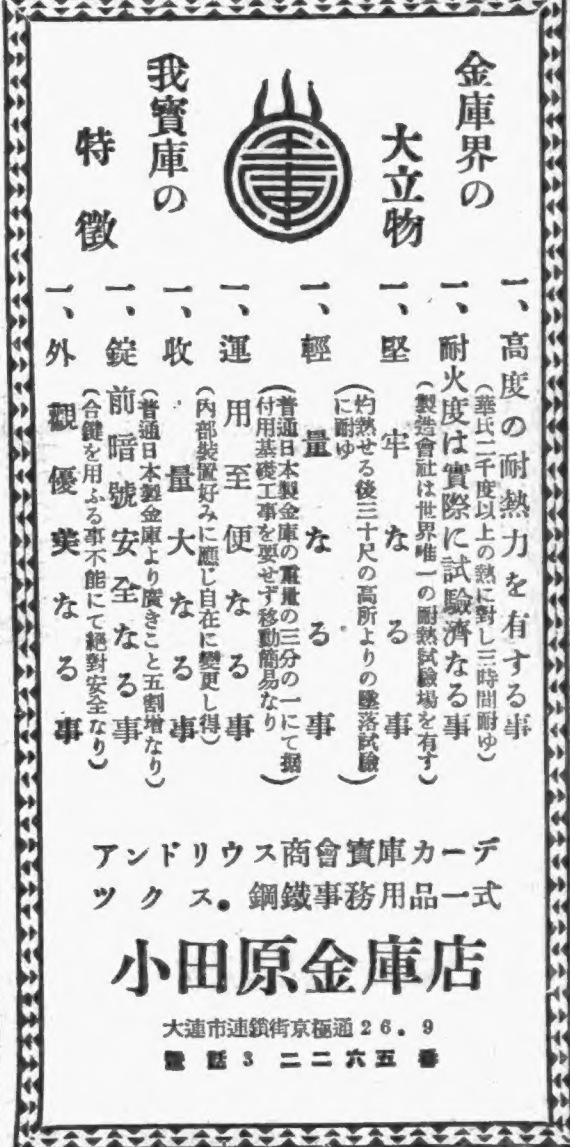 金庫界の
大立物
我寶庫の
特徵
一、高度の耐熱力を有する事
(華氏二千度以上の熱に對し三時間耐ゆ)
一、耐火度は實際に試驗濟なる事
(製造會社は世界唯一の耐熱試驗場を有す)
一、堅牢なる事
(灼熱せる後三十尺の高所よりの墜落試驗
に耐ゆ)
一、輕量なる事
(普通日本製金庫の重量の三分の一にて据
付用基礎工事を要せず移動簡易なり)
一、運用至便なる事
(內部裝置好みに應じ自在に變更し得)
一、收量大なる事
(普通日本製金庫より廣きこと五割增なり)
一、錠前暗號安全なる事
(合鍵を用ふる事不能にて絕對安全なり)
一、外觀優美なる事
アンドリウス商會寶庫カーデ
ツクス。鋼鐵事務用品一式
小田原金庫店
大連市連鎖街京極通26.9
電話3二二六五番